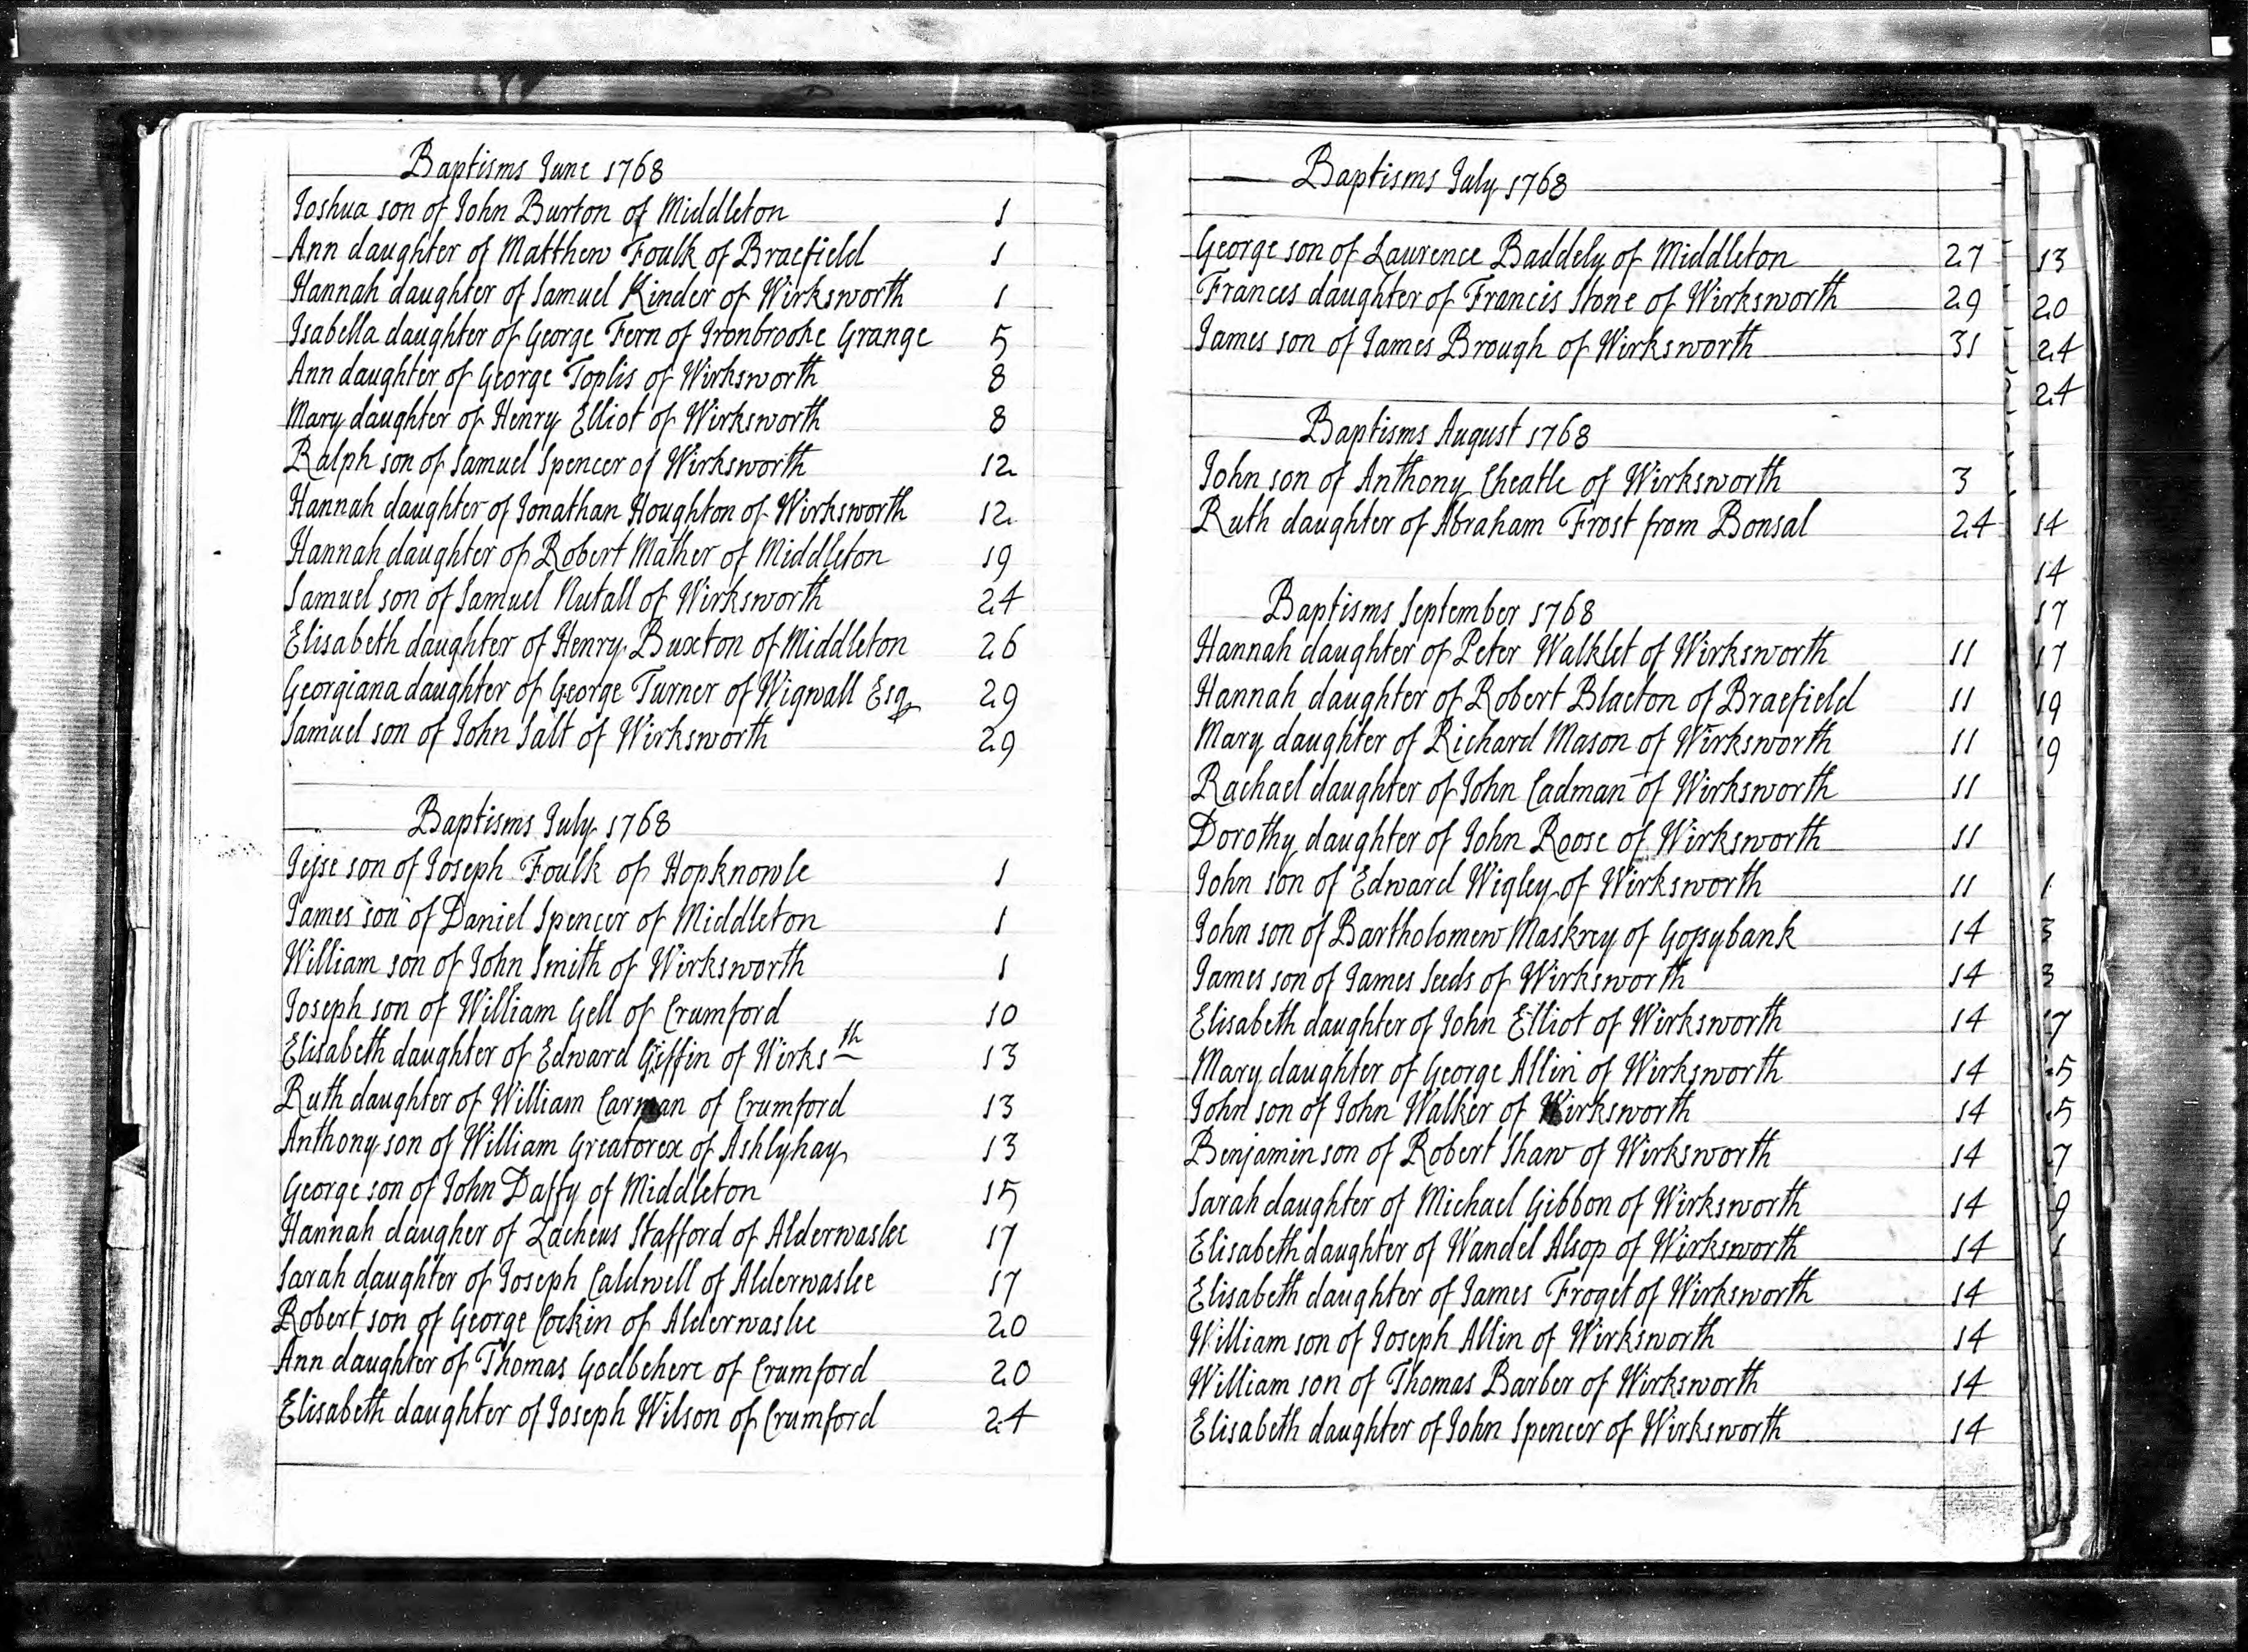 Baptisms June 1768
Joshua son of John Burton of Middleton 1
Ann daughter of Matthew Foulk of Bracfield 1
Hannah daughter of Samuel Kinder of Wirksworth 1
Isabella daughter of George Fern of Ironbrooke Grange 5
Ann daughter of George Toplis of Wirksworth 8
Mary daughter of Henry Elliot of Wirksworth 8
Ralph son of Samuel Spencer of Wirksworth 12
Hannah daughter of Jonathan Houghton of Wirksworth 12
Hannah daughter of Robert Mather of Middleton 19
Samuel son of Samuel Nutall of Wirksworth 24
Elisabeth daughter of Henry Buxton of Middleton 26
Georgiana daughter of George Turner of Wigwall Esq 29
Samuel son of John Salt of Wirksworth 29
Baptisms July 1768
Jesse son of Joseph Foulk of Hopknowle 1
James son of Daniel Spencer of Middleton 1
William son of John Smith of Wirksworth 1
Joseph son of William Gell of Crumford 10
Elisabeth daughter of Edward Giffin of Wirksth 13
Ruth daughter of William Carman of Crumford 13
Anthony son of William Greatorex of Ashlyhay 13
George son of John Daffy of Middleton 15
Hannah daugher of Zacheus Stafford of Alderwaslee 17
Sarah daughter of Joseph Caldwell of Alderwaslee 17
Robert son of George Cockin of Alderwaslee 20
Ann daughter of Thomas Godbehere of Crumford 20
Elisabeth daughter of Joseph Wilson of Crumford 24
Baptisms July 1768
George son of Laurence Baddely of Middleton 27
Frances daughter of Francis Stone of Wirksworth 29
James son of James Brough of Wirksworth 31
Baptisms August 1768
John son of Anthony Cheatle of Wirksworth 3
Ruth daughter of Abraham Frost from Bonsal 24
Baptisms September 1768
Hannah daughter of Peter Walklet of Wirksworth 11
Hannah daughter of Robert Blacton of Bracfield 11
Mary daughter of Richard Mason of Wirksworth 11
Rachael daughter of John Cadman of Wirksworth 11
Dorothy daughter of John Roose of Wirksworth 11
John son of Edward Wigley of Wirksworth 11
John son of Bartholomew Maskrey of Gopsybank 14
James son of James Seeds of Wirksworth 14
Elisabeth daughter of John Elliot of Wirksworth 14
Mary daughter of George Allin of Wirksworth 14
John son of John Walker of Wirksworth 14
Benjamin son of Robert Shaw of Wirksworth 14
Sarah daughter of Michael Gibbon of Wirksworth 14
Elisabeth daughter of Wandel Alsop of Wirksworth 14
Elisabeth daughter of James Froget of Wirksworth 14
William son of Joseph Allin of Wirksworth 14
William son of Thomas Barber of Wirksworth 14
Elisabeth daughter of John Spencer of Wirksworth 14
13
20
24
24
14
14
17
17
19
19